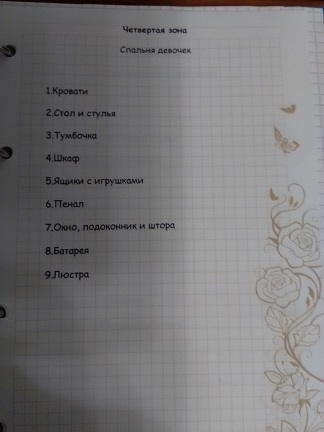 Четвертая зона
Спальня девочек
1.Кровати
2.Стол и стулья
3.Тумбочка
4.Шкаф
5.Ящики с игрушками
6.Пенал
7.Окно, подоконник и штора
8.Батарея
9.Люстра